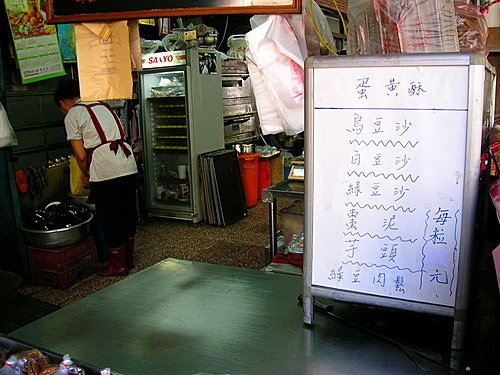 SANYO
蛋黃酥
烏豆沙
白豆沙
綠豆沙
棗泥
芋頭
綠豆肉鬆
每粒 元